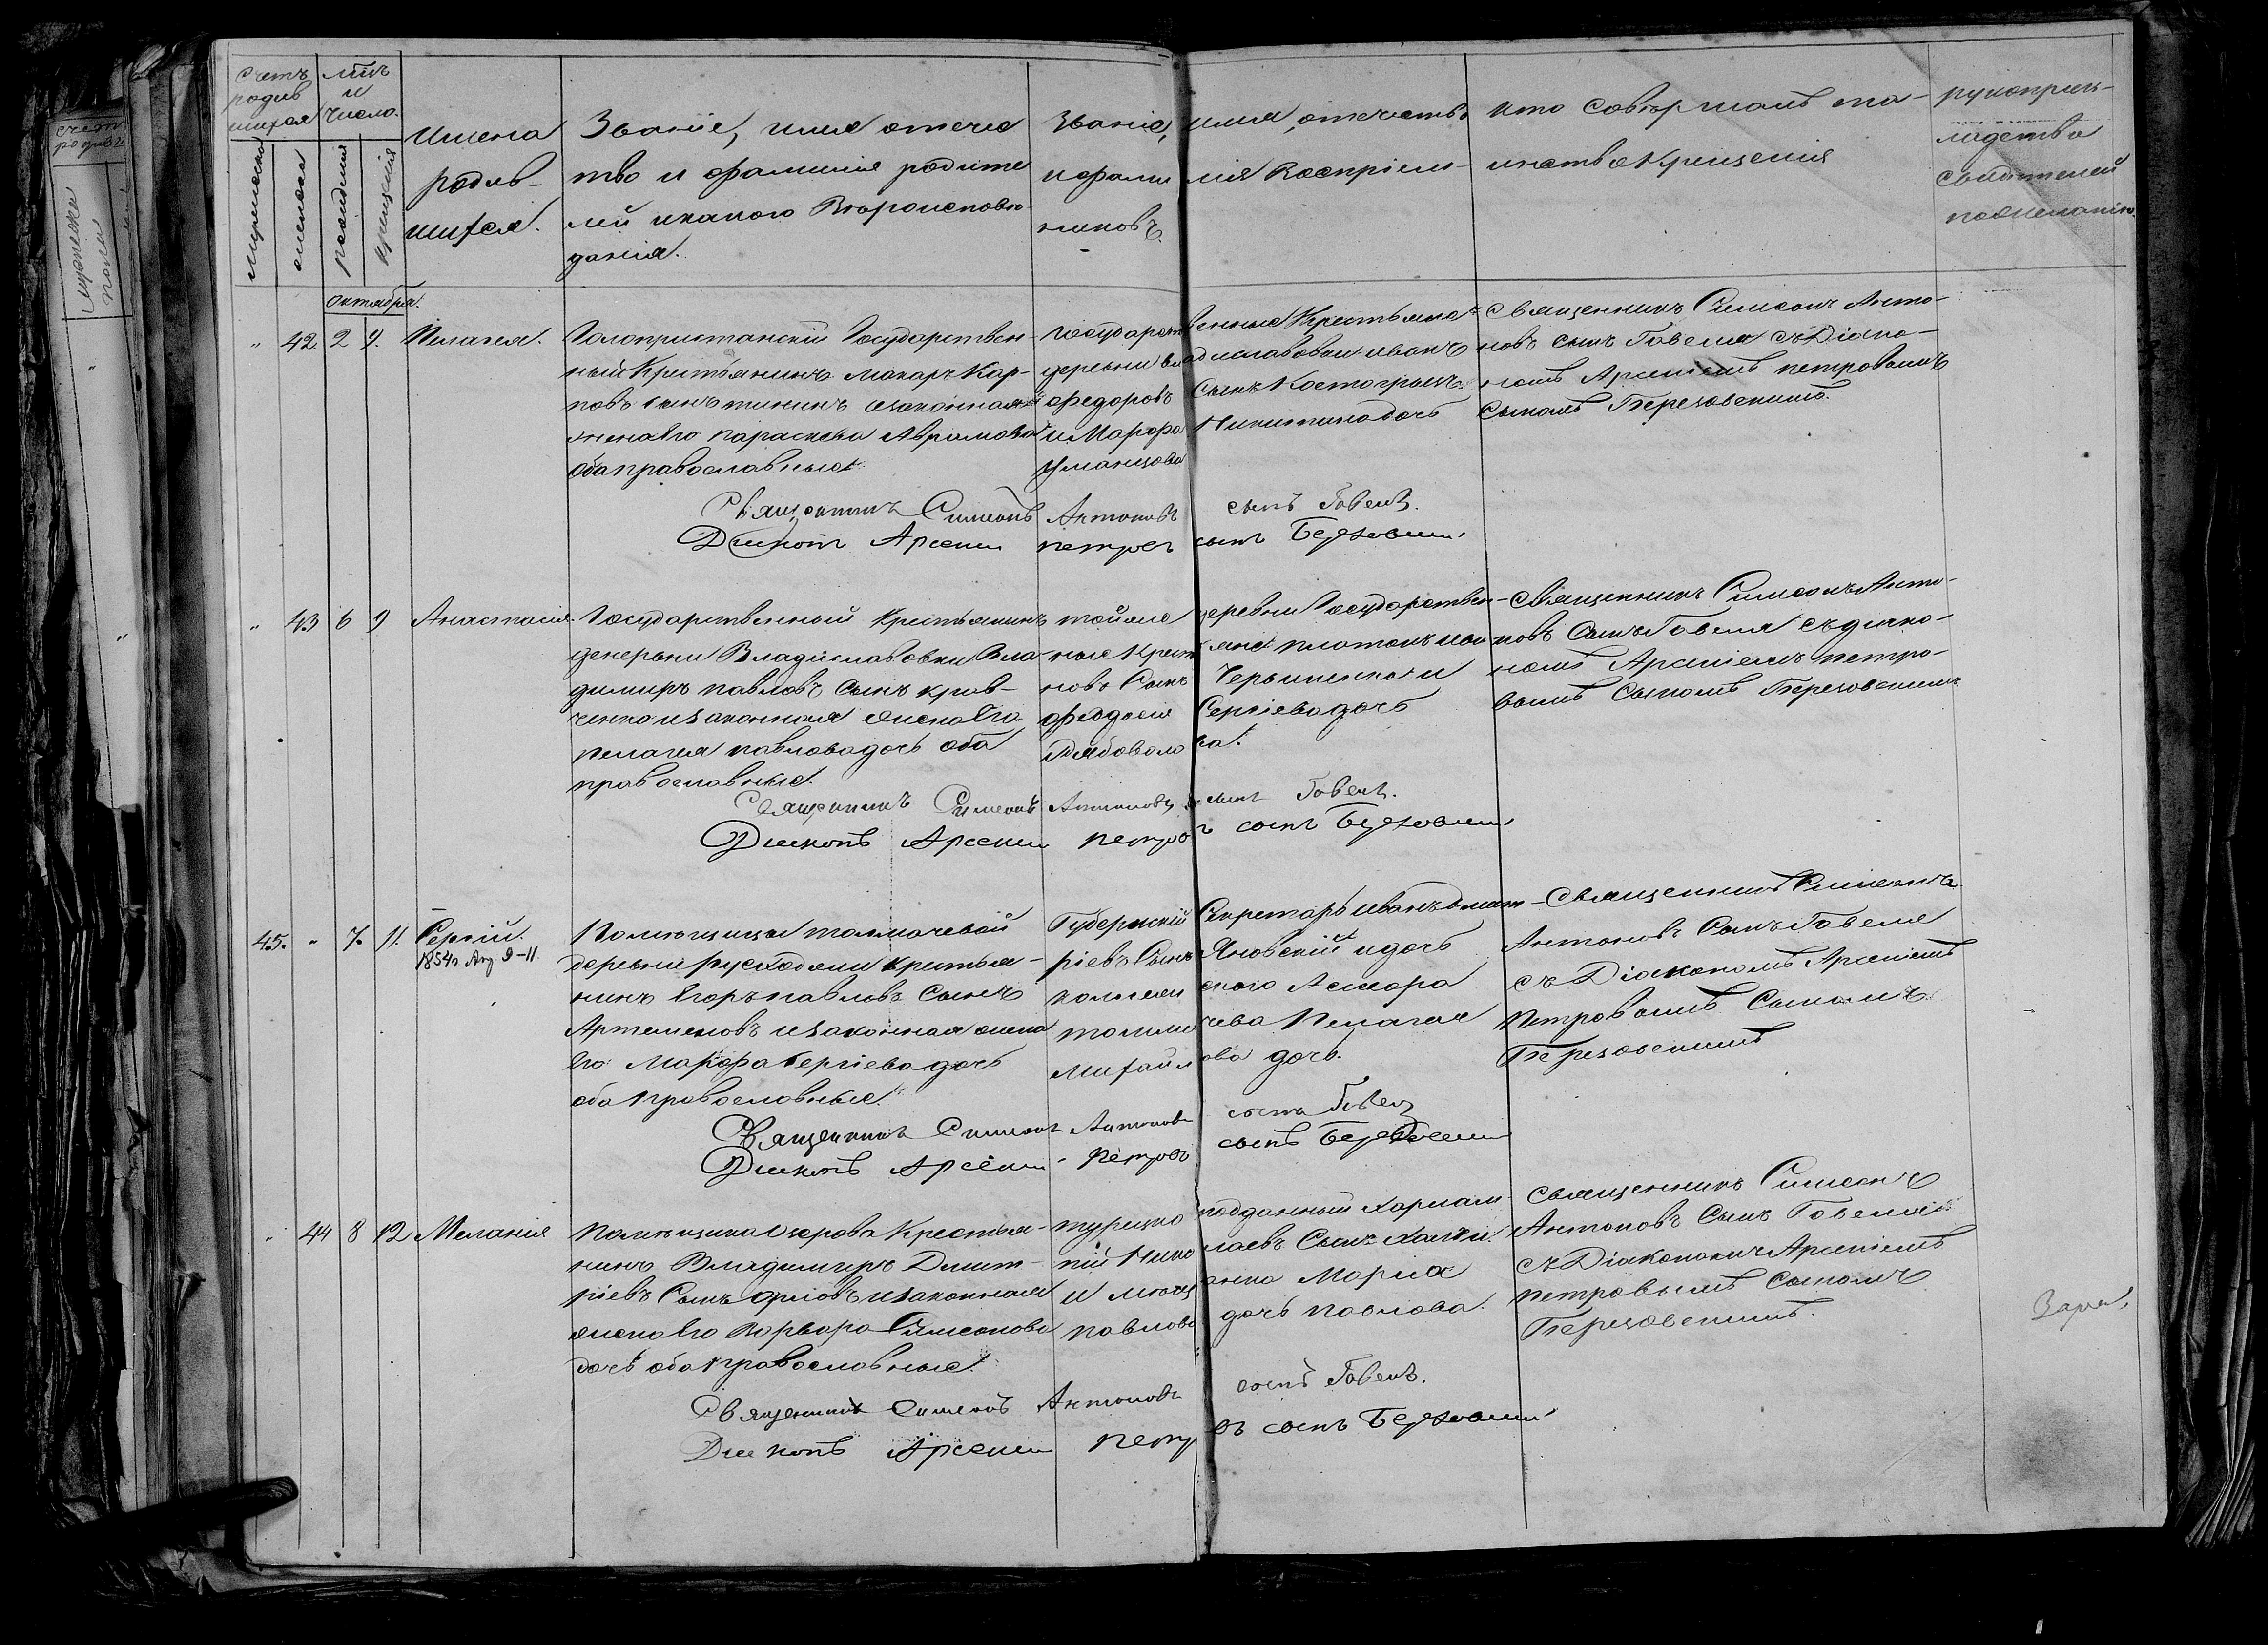 счетъ
родив
шихся
мѣс.
и
число.
мужеска
женска
рожденія
крещенія
Имена
родив-
шихся.
Званіе, имя отече
тво и фамилія родите
лей и какого Вѣроисповѣ
данія.
Званіе, имя, отечество
и фами лія Воспріем-
никовъ.
Кто Совершалъ та-
инство Крещенія
рукоприк-
ладство
свидетелей
по желанію.
Октября.
" 42. 2 9. Пелагея.
Голопристанскій Государствен-
ный Крестьянинъ Макаръ Кар-
повъ сынъ и законная
жена его Параскева Аврамова
оба православные.
Государственные Крестьяне
деревни Владиславовки иванъ
федоровъ Сынъ Костогрызъ
и Марфа Никитина дочь
Уманцова
Священникъ Симеонъ Анто-
новъ сынъ Говеля съ Діако-
номъ Арсеніемъ петровымъ
Сыномъ Березовскимъ.
Священникъ Симеонъ Антоновъ сынъ Говеля.
Дияконъ Арсений петровъ сынъ Березовский
" 43 6 9 Анастасія.
Государственный крестьянинъ
деревни Владиславовки Вла-
димиръ павловъ сынъ крав-
ченко и законная жена Его
пелагея павлова дочь оба
православные.
той же деревни Государствен-
ные Крестьяне платонъ ива
новъ Сынъ Чернипско и
феодосія Сергіева дочь
Рябоволова.
Священникъ Симеонъ Анто-
новъ Сынъ Говеля съ дьяко-
номъ Арсеніемъ петро-
вымъ Сыномъ Березовскимъ
Священникъ Симеонъ Антоновъ сынъ Говеля.
Дияконъ Арсений петровъ сынъ Березовский
45. " 7. 11. Сергій.
1854
9-11
Помѣщицы толмачевой
деревни крестья-
нинъ Егоръ павловъ Сынъ
Артеменковъ и законная жена
Его Марфа Сергіева дочь
оба православные.
Губернскій Секретарь иванъ Дмит-
ріевъ Сынъ Яновскій и дочь
Коллежскаго Асесора
толмачева Пелагея
Михайлова дочь.
Священникъ Симеонъ
Антоновъ Сынъ Говеля
съ Діакономъ Арсеніемъ
Петровымъ Сыномъ
Березовскимъ
Священникъ Симеонъ Антоновъ сынъ Говеля
Дияконъ Арсений Петровъ сынъ Березовский
" 44 8 12 Меланія
Помѣщика Озерова Крестья-
нинъ Владимиръ Дмит-
ріевъ Сынъ орловъ и законная
жена Его Варвара Симеонова
дочь оба православные.
турецко подданный Харлам
пій Николаевъ Сынъ
и мещанка Марія
павлова дочь павлова.
Священникъ Симеонъ
Антоновъ Сынъ Говеля
съ Діакономъ Арсеніемъ
петровымъ Сыномъ
Березовскимъ.
Священникъ Симеонъ Антоновъ сынъ Говеля.
Дияконъ Арсений Петровъ сынъ Березовский